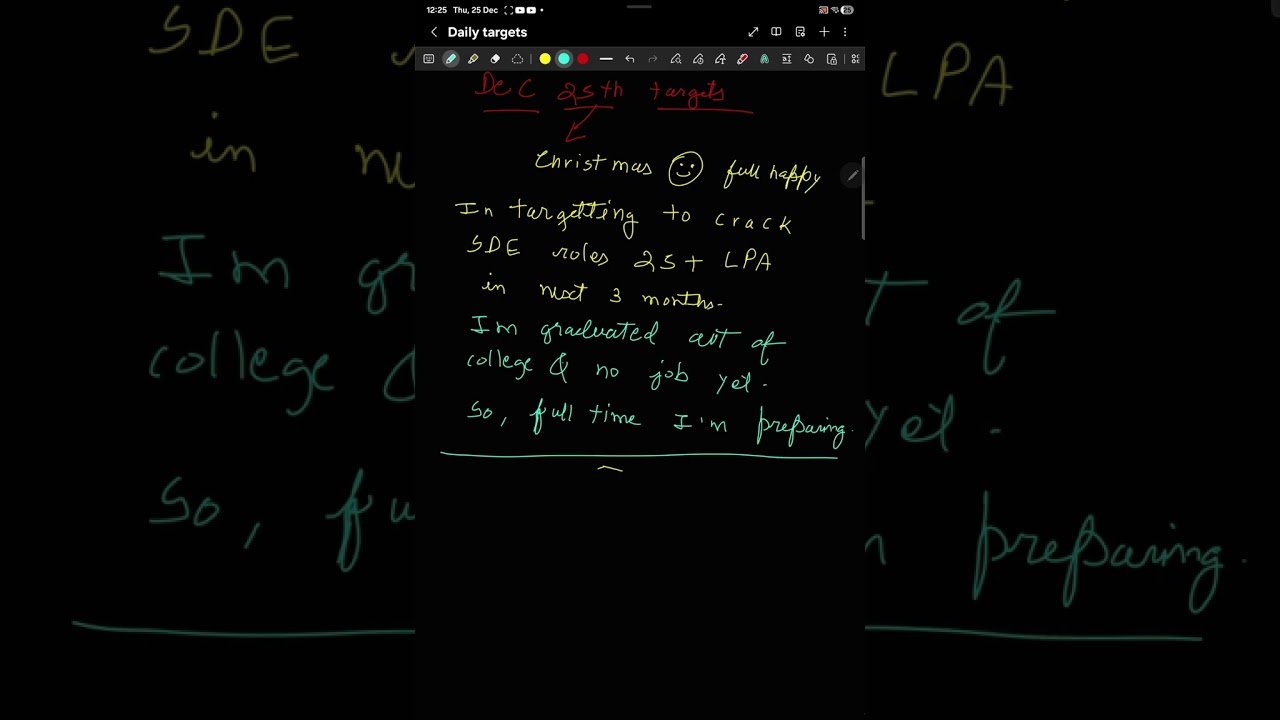 12:25 Thu, 25 Dec
25
Daily targets
DEC 25th targets
Christmas full happy
In targetting to crack
SDE roles 25+ LPA
in next 3 months.
I'm graduated out of
college & no job yet.
So, full time I'm preparing.